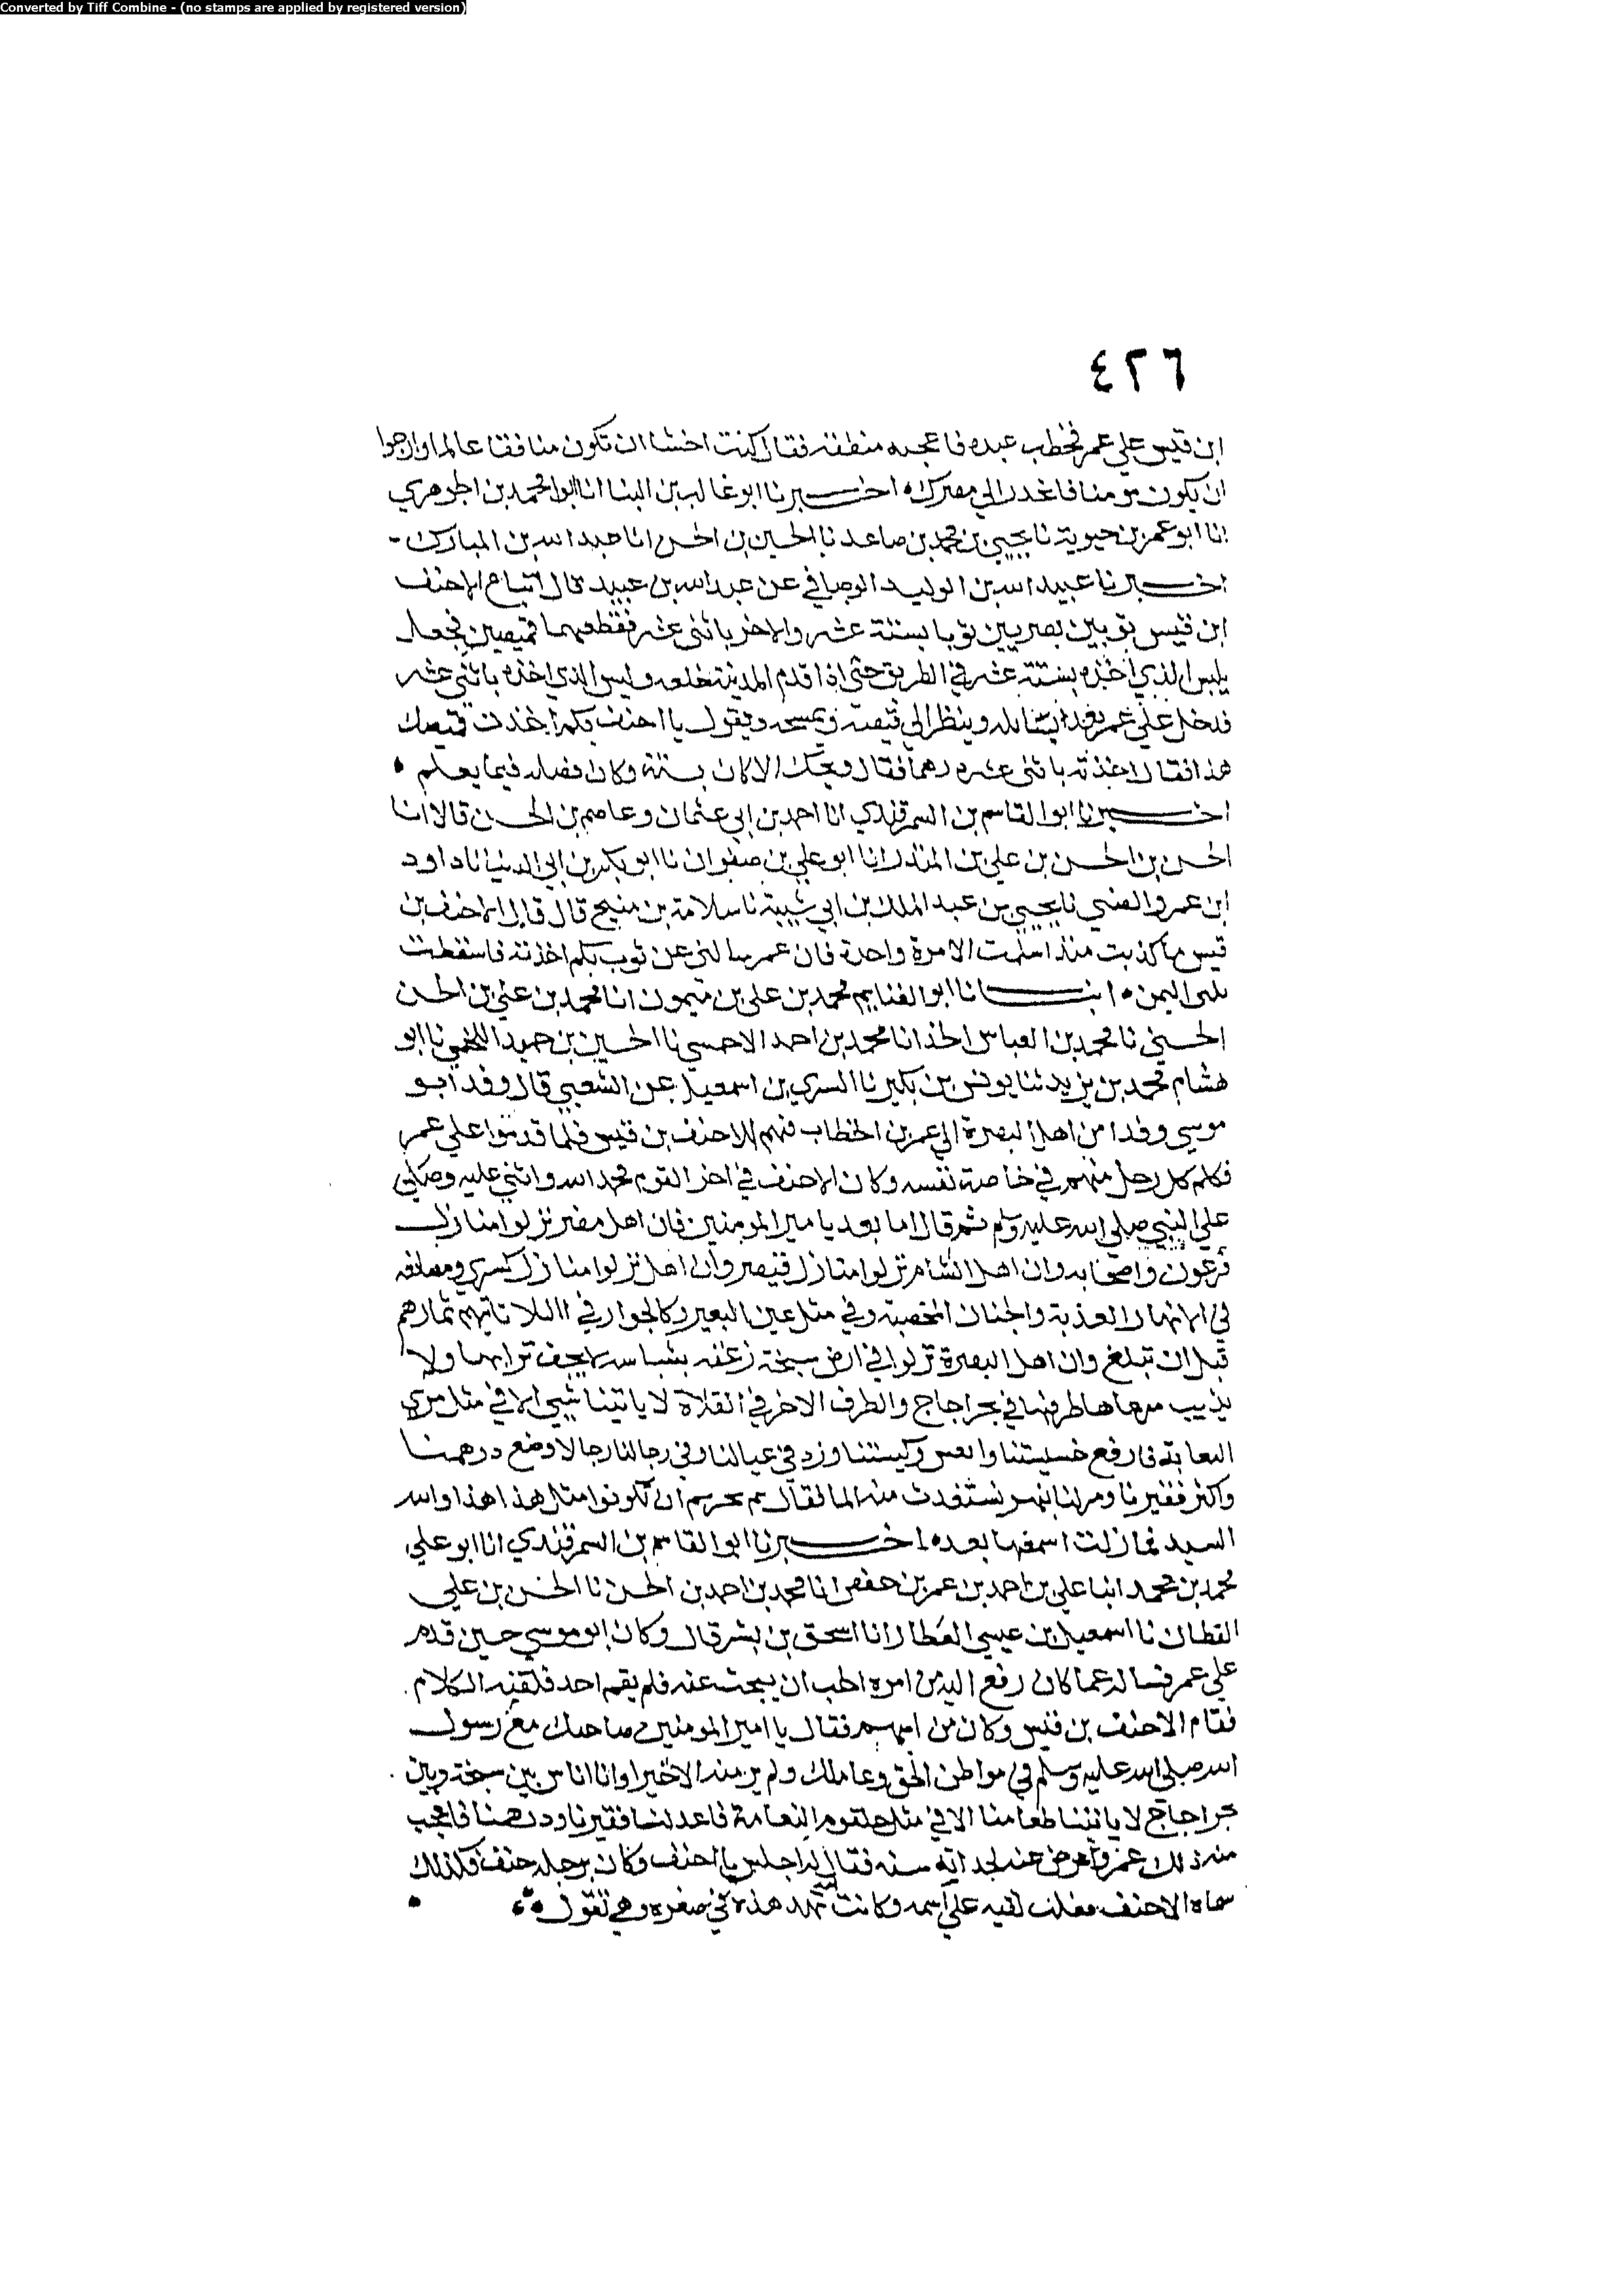 Converted by Tiff Combine - (no stamps are applied by registered version)
٤٢٦
ابن قيس علي عمر فخطب عنده فاعجبه منطقه فقال كنت اخشا ان تكون منافقا عالما وارجوا
ان يكون مومنا فانحدر الي مصرك اخبرنا ابو غالب بن البنا انا ابو محمد بن الجوهري
انا ابو عمر بن حيوية نا يحيي بن محمد بن صاعد نا الحسين بن الحسن انا عبد الله بن المبارك
اخبرنا عبيد الله بن الوليد الوصافي عن عبد الله بن عبيد قال ابتاع الاحنف
ابن قيس ثوبين بصريين ثوبا بستة عشر والاخر باثني عشر فقطعهما قميصين فجعل
يلبس الذي اخذه بستة عشر في الطريق حتى اذا قدم المدينة خلعه ولبس الذي اخذه باثني عشر
فدخل علي عمر فجعل يسائله وينظر الي قميصه ويمسحه ويقول يا احنف بكم اخذت قميصك
هذا فقال اخذته باثني عشر درهما فقال ويحك الا كان بستة وكان فضله فيما يعلم
اخبرنا ابو القاسم بن السمرقندي انا احمد بن ابي عثمان وعاصم بن الحسن قالا انا
الحسن بن الحسن بن علي بن المنذر انا ابو علي بن صفوان نا ابو بكر بن ابي الدنيا نا داود
ابن عمرو الضبي نا يحيي بن عبد الملك بن ابي شيبة نا سلامة بن منيح قال قال الاحنف بن
قيس ما كذبت منذ اسلمت الا مرة واحدة فان عمر سالني عن ثوب بكم اخذته فاسقطت
ثلثي الثمن انبانا ابو الغنايم محمد بن علي بن ميمون انا محمد بن علي بن الحسن
الحسني نا محمد بن العباس الحذا نا محمد بن احمد الاحمسي نا الحسين بن حميد اللخمي نا ابو
هشام محمد بن يزيد ثنا يونس بن بكير نا السري بن اسمعيل عن الشعبي قال وفد ابو
موسي وفدا من اهل البصرة الي عمر بن الخطاب فيهم الاحنف بن قيس فلما قدموا علي عمر
فكلم كل رجل منهم في خاصة نفسه وكان الاحنف في اخر القوم فحمد الله واثني عليه وصلي
علي النبي صلي الله عليه وسلم ثم قال اما بعد يا مير المومنين فان اهل مصر نزلوا منازل
فرعون واصحابه وان اهل الشام نزلوا منازل قيصر وان اهل نزلوا منازل كسري ومصانعه
في الانهار العذبة والجنان المخصبة وفي مثل عين البعير وكالحوار في السلا تاتيهم ثمارهم
قبل ان تبلغ وان اهل البصرة نزلوا في ارض سبخة لا يجف ترابها ولا
مرعاها طرفها في بحر اجاج والطرف الاخر في الفلاة لا ياتينا شيي الا في مثل مري
النعامة فارفع خسيستنا وانعش وكيستنا وزد في عيالنا وفي رجالنا رجالا وضع درهمنا
واكثر فقيرنا ومر لنا بنهر نستعذب منه الما فقال عمر ان تكونوا مثل هذا هذا والله
السيد فما زلت اسمعها بعده اخبرنا ابو القاسم بن السمرقندي انا ابو علي
محمد بن محمد انبا علي بن احمد بن عمر بن حفص انا محمد بن احمد بن الحسن نا الحسن بن علي
القطان نا اسمعيل بن عيسي العطار انا اسحق بن بشر قال وكان ابو موسي حين قدم
علي عمر فساله عما كان رفع اليه من امره احب ان يبحث عنه فلم يقم احد فلقنه الكلام
فقام الاحنف بن قيس وكان من فقال يا امير المومنين صاحبك مع رسول
الله صلي الله عليه وسلم في مواطن الحق وعاملك ولم ير منه الا خيرا وانا اناس بين سبخة وبين
بحر اجاج لا ياتينا طعامنا الا في مثل حلقوم النعامة فاعد لنا فقيرنا ودرهمنا فاعجب
منه ذلك عمر واعرض عنه لحداثة سنه فقال له اجلس يا احنف وكان برجله حنف فلذلك
سماه الاحنف فغلب لقبه علي اسمه وكانت امه هذه في صغره وهي تقول